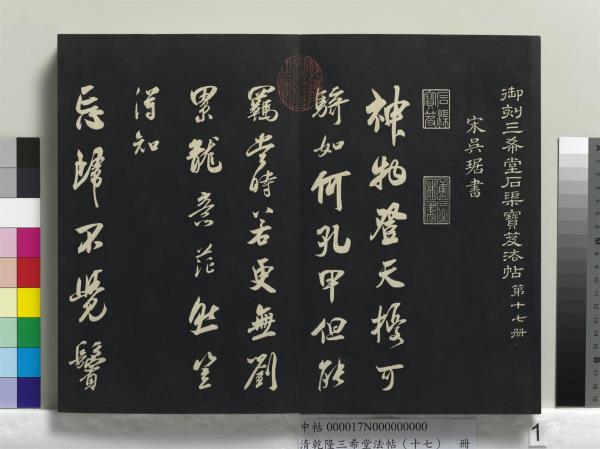 御刻三希堂石渠寶笈法帖第十七册
宋吳琚書
石渠寶笈
神物登天擾可
騎如何孔甲但能
羈當時若更無劉
累龍意茫然豈
得知
忘歸不覺鬢
中帖 000017N000000000
清乾隆三希堂法帖（十七） 冊
1